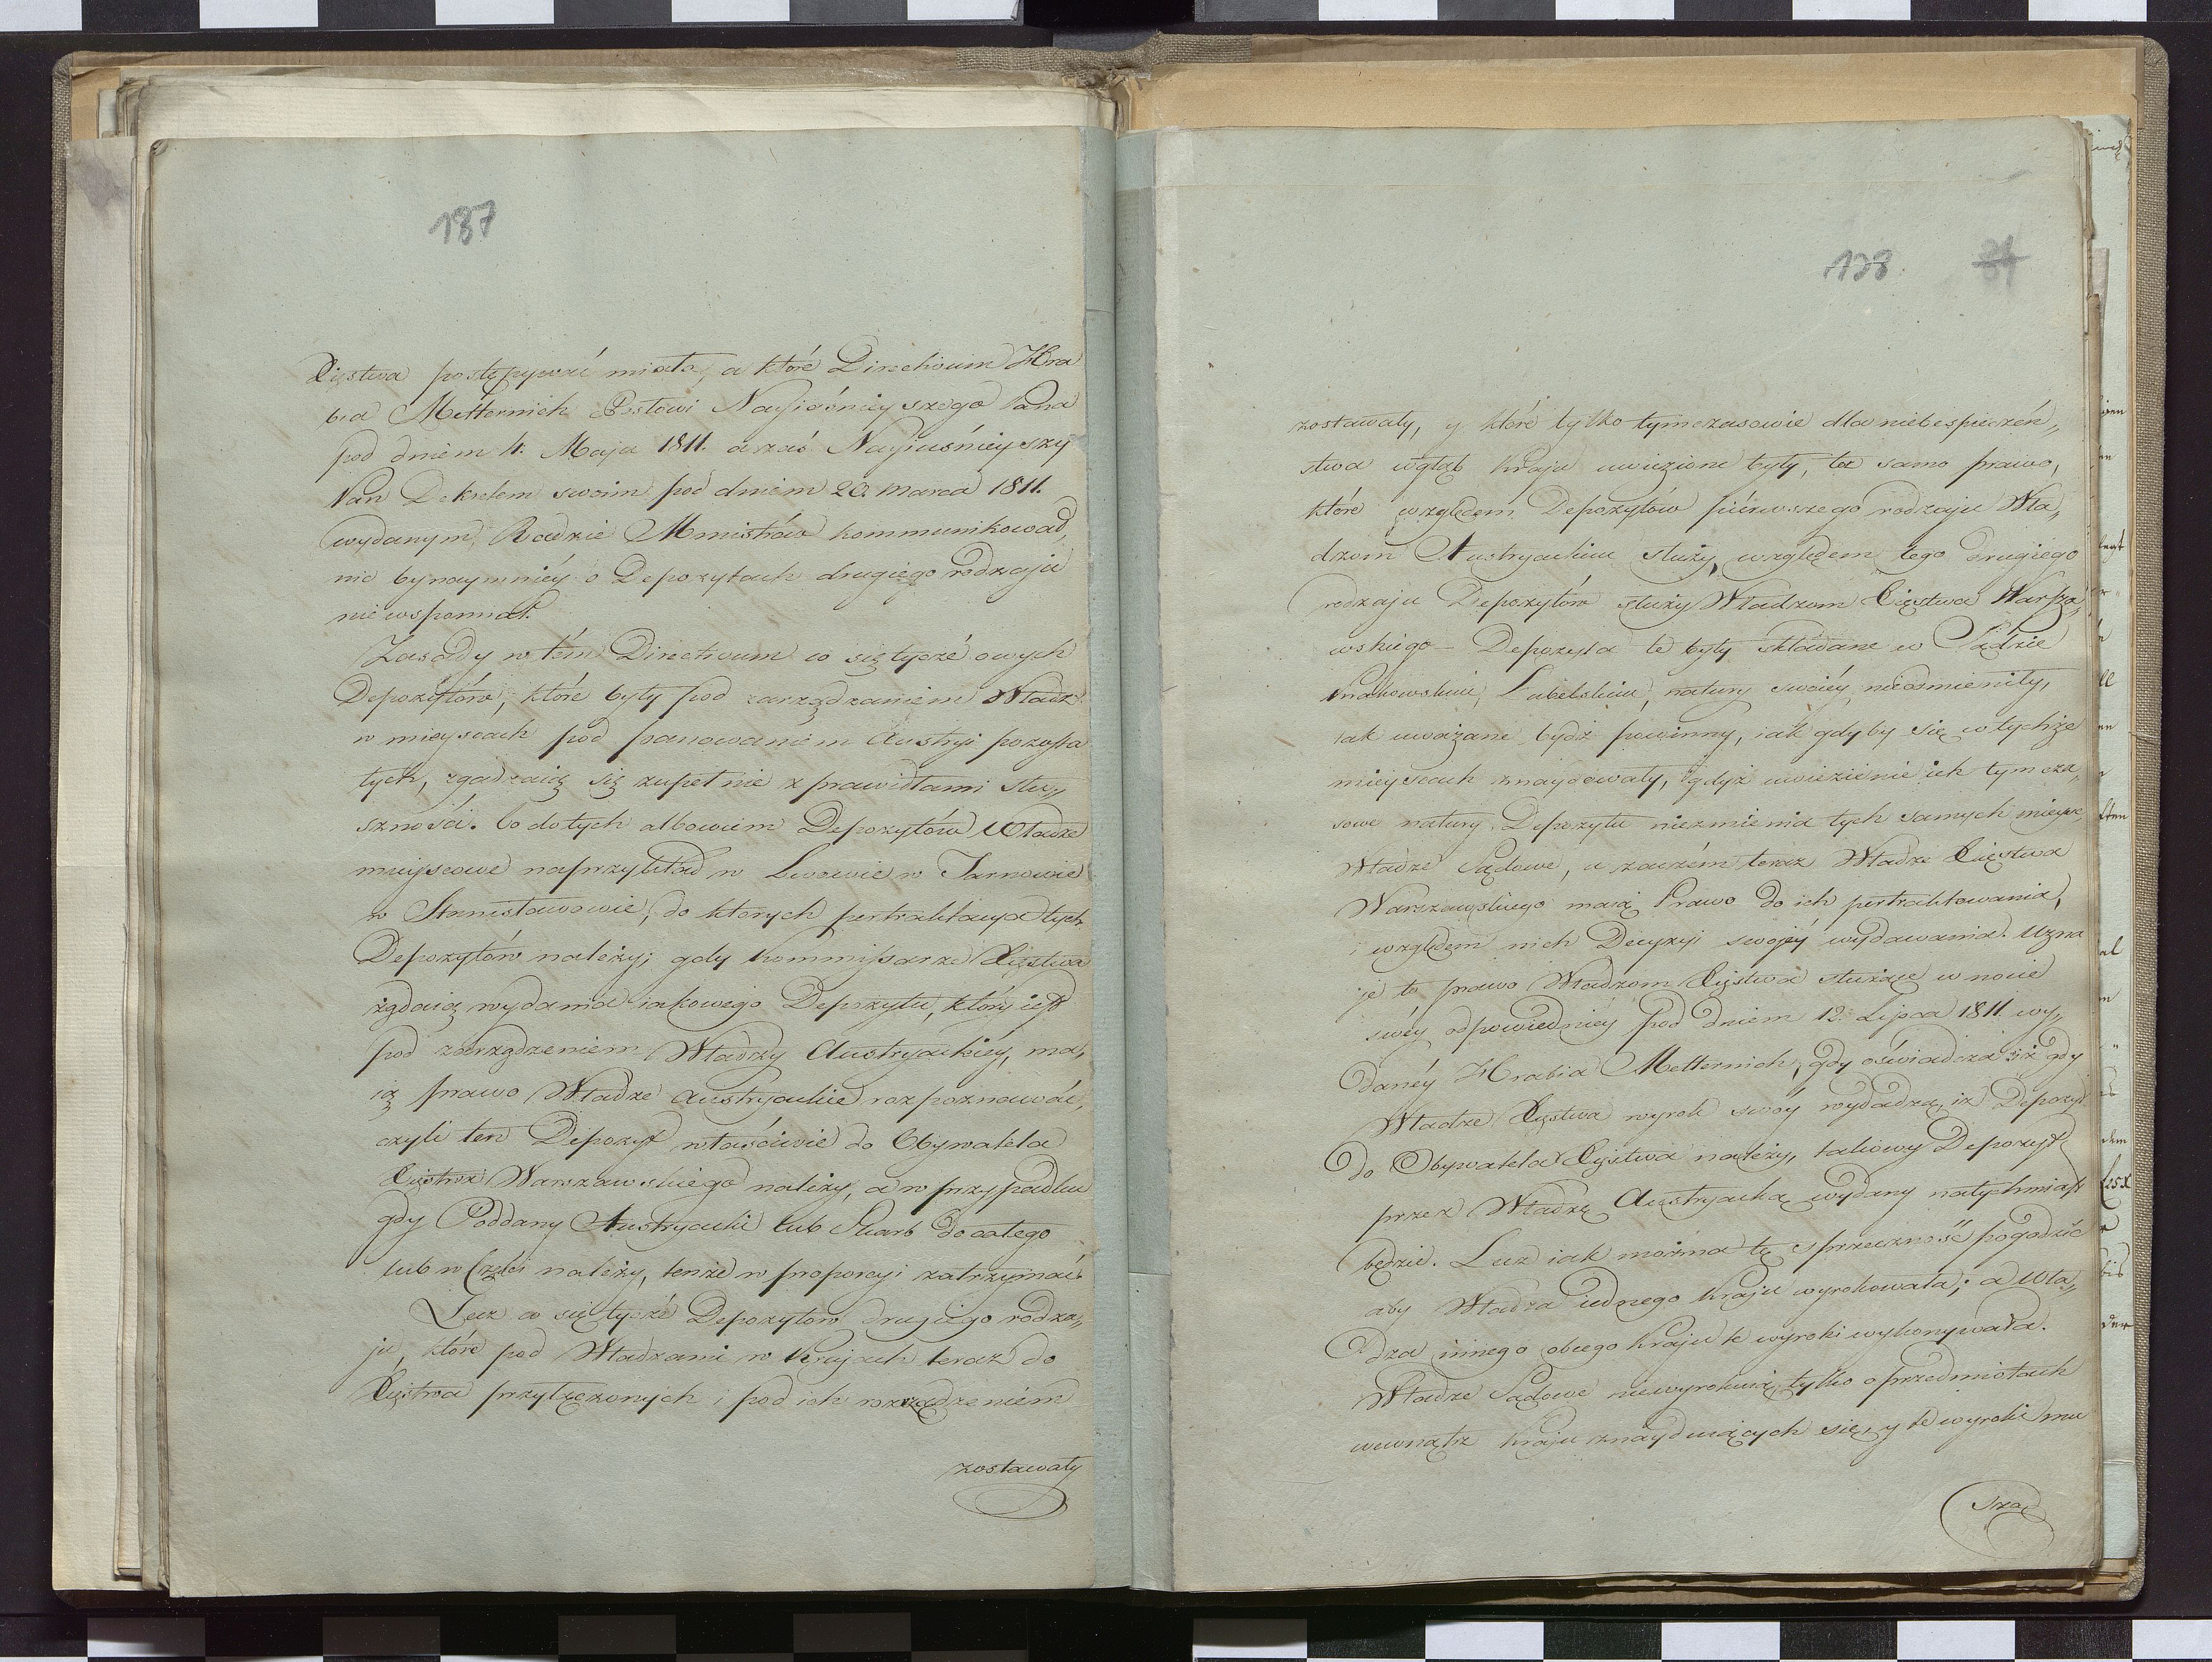 187
Xięstwa postępywać miała, a które Directivum Hra
bia Metternich Posłowi Nayiaśnieyszego Pana
pod dniem 4. Maja 1811. a zaś Nayiaśnieyszy
Pan Dekretem swoim pod dniem 20. Marca 1811.
wydanym, Radzie Ministrów kommunikował,
nic bynaymniéy o Depozytach drugiego rodzaju
nie wspomniał.
Zasady w tém Directivum co się tycze owych
Depozytów, które były pod zarządzaniem Władz
w mieyscach pod panowaniem Austryi pozosta
łych, zgadzaią się zupełnie z prawidłami słu„
szności. Co do tych albowiem Depozytów Władze
mieyscowe naprzykład w Lwowie w Tarnowie
w Stanisławowie, do których pertraktacya tych
Depozytów należy; gdy Kommissarze Xięstwa
żądaią wydania iakowego Depozytu, który iest
pod zarządzeniem Władzy Austryackiey, ma„
ią prawo Władze Austryackie rozpoznawać,
czyli ten Depozyt właściwie do Obywatela
Xięstwa Warszawskiego należy, a w przypadku
gdy Poddany Austryacki lub Skarb do całego
lub w Części należy, tenże w proporcyi zatrzymać.
Lecz co się tycze Depozytów drugiego rodza„
ju, które pod Władzami w Krajach teraz do
Xięstwa przyłączonych i pod ich rozrządzeniem
zostawały
138. 31
zostawały, y które tylko tymczasowie dla niebespieczeń„
stwa wgłąb kraju uwiezione były, to samo prawo,
które względem Depozytów pierwszego rodzaju Wła„
dzom Austryackim służy, względem tego drugiego
rodzaju Depozytów służy Władzom Xięstwa Warsza„
wskiego – Depozyta te były składane w Sądzie
Krakowskim, Lubelskim, natury swoiéy nieodmieniły,
iak uważane bydź powinny, iak gdyby się w tychże
mieyscach znaydowały, gdyż uwiezienie ich tymcza„
sowe natury Depozytu niezmienia tych samych mieysc,
Władze Sądowe, a zaczém teraz Władze Xięstwa
Warszawskiego maią Prawo do ich pertraktowania,
i względem nich Decyzyi swojéy wydawania. Uzna
je to prawo Władzom Xięstwa służące w nocie
swéy odpowiedniéy pod dniem 12. Lipca 1811 wy„
danéy Hrabia Metternich, gdy oświadcza iż gdy
Władze Xięstwa wyrok swóy wydadzą, iż Depozyt
do Obywatela Xięstwa należy, takowy Depozyt
przez Władzę Austryacką wydany natychmiast
będzie. Lecz iak można tę sprzeczność pogodzić
aby Władza iednego kraju wyrokowała; a Wła„
dza innego obcego kraju te wyroki wykonywała.
Władze Sądowe niewyrokuią tylko o przedmiotach
wewnątrz kraju znayduiących się, y te wyroki mu
szą